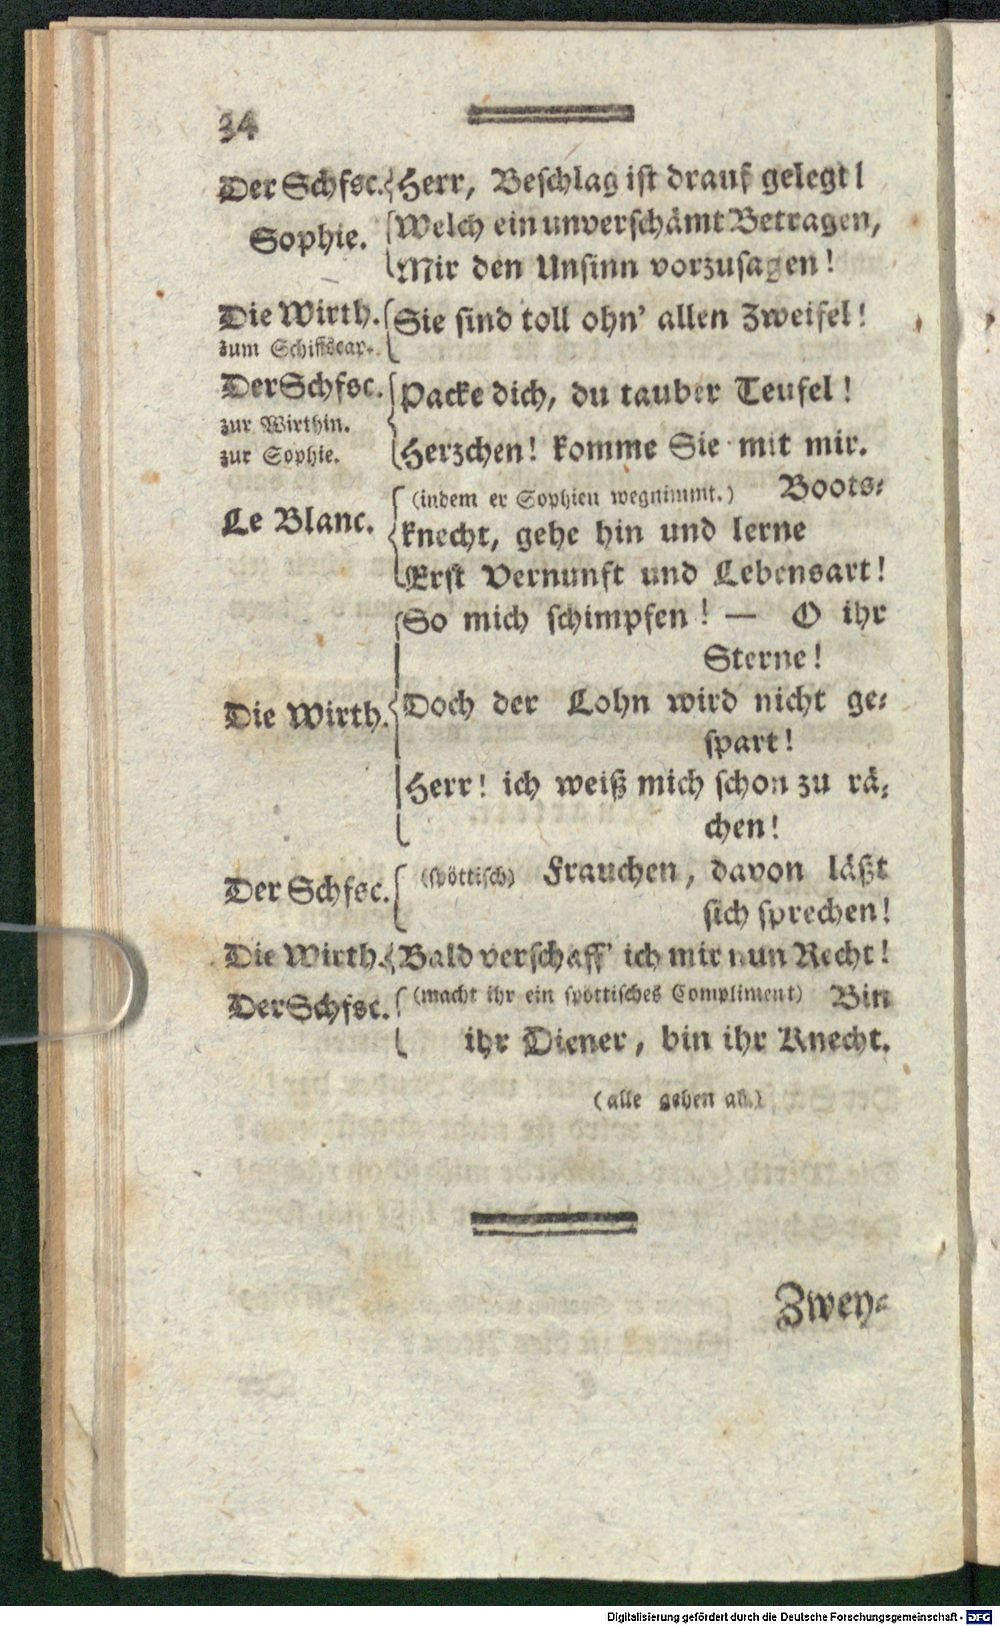 34
Der Schfsc. Herr, Beschlag ist drauf gelegt!
Sophie. Welch ein unverschämt Betragen,
Mir den Unsinn vorzusagen!
Die Wirth. Sie sind toll ohn' allen Zweifel!
zum Schiffscap.
Der Schfsc. Packe dich, du tauber Teufel!
zur Wirthin.
zur Sophie. Herzchen! komme Sie mit mir.
(indem er Sophien wegnimmt.) Boots-
Le Blanc. knecht, gehe hin und lerne
Erst Vernunft und Lebensart!
So mich schimpfen! — O ihr
Sterne!
Die Wirth. Doch der Lohn wird nicht ge-
spart!
Herr! ich weiß mich schon zu rä-
chen!
Der Schfsc. (spöttisch) Frauchen, davon läßt
sich sprechen!
Die Wirth. Bald verschaff' ich mir nun Recht!
Der Schfsc. (macht ihr ein spöttisches Compliment) Bin
ihr Diener, bin ihr Knecht.
(alle gehen ab.)
Zwey-
Digitalisierung gefördert durch die Deutsche Forschungsgemeinschaft - DFG